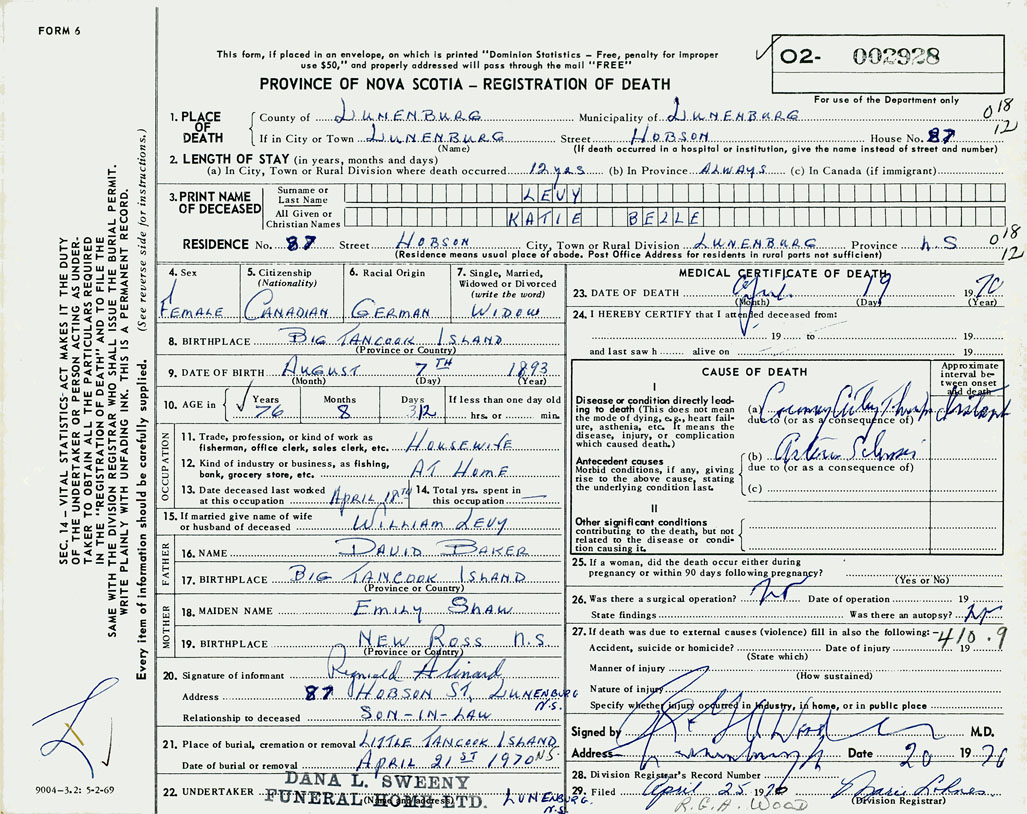 FORM 6
This form, if placed in an envelope, on which is printed "Dominion Statistics – Free, penalty for improper
use $50," and properly addressed will pass through the mail "FREE"
02- 002928
PROVINCE OF NOVA SCOTIA – REGISTRATION OF DEATH
For use of the Department only
1. PLACE OF DEATH
County of LUNENBURG Municipality of LUNENBURG 018
If in City or Town LUNENBURG Street HOBSON House No. 87 12
(Name) (If death occurred in a hospital or institution, give the name instead of street and number)
2. LENGTH OF STAY (in years, months and days)
(a) In City, Town or Rural Division where death occurred 12 yrs (b) In Province ALWAYS (c) In Canada (if immigrant)
3. PRINT NAME OF DECEASED
Surname or Last Name LEVY
All Given or Christian Names KATIE BELLE
RESIDENCE No. 87 Street HOBSON City, Town or Rural Division LUNENBURG Province N.S 018
(Residence means usual place of abode. Post Office Address for residents in rural parts not sufficient) 12
4. Sex FEMALE
5. Citizenship (Nationality) CANADIAN
6. Racial Origin GERMAN
7. Single, Married, Widowed or Divorced (write the word) WIDOW
8. BIRTHPLACE BIG TANCOOK ISLAND
(Province or Country)
9. DATE OF BIRTH AUGUST 7TH 1893
(Month) (Day) (Year)
10. AGE in Years 76 Months 8 Days 12 If less than one day old hrs. or min.
OCCUPATION
11. Trade, profession, or kind of work as fisherman, office clerk, sales clerk, etc. HOUSEWIFE
12. Kind of industry or business, as fishing, bank, grocery store, etc. AT HOME
13. Date deceased last worked at this occupation APRIL 18TH
14. Total yrs. spent in this occupation —
15. If married give name of wife or husband of deceased WILLIAM LEVY
FATHER
16. NAME DAVID BAKER
17. BIRTHPLACE BIG TANCOOK ISLAND
(Province or Country)
MOTHER
18. MAIDEN NAME EMILY SHAW
19. BIRTHPLACE NEW ROSS N.S
(Province or Country)
20. Signature of informant
Address 87 HOBSON ST. LUNENBURG N.S.
Relationship to deceased SON-IN-LAW
21. Place of burial, cremation or removal LITTLE TANCOOK ISLAND NS
Date of burial or removal APRIL 21ST 1970
22. UNDERTAKER DANA L. SWEENY
FUNERAL HOME LTD. LUNENBURG. N.S.
(Name and address)
MEDICAL CERTIFICATE OF DEATH
23. DATE OF DEATH April 19 1970
(Month) (Day) (Year)
24. I HEREBY CERTIFY that I attended deceased from:
19 to 19
and last saw h alive on 19
CAUSE OF DEATH
Approximate interval between onset and death
I
Disease or condition directly leading to death (This does not mean the mode of dying, e.g., heart failure, asthenia, etc. It means the disease, injury, or complication which caused death.)
(a) Instant
due to (or as a consequence of)
Antecedent causes
Morbid conditions, if any, giving rise to the above cause, stating the underlying condition last.
(b)
due to (or as a consequence of)
(c)
II
Other significant conditions contributing to the death, but not related to the disease or condition causing it.
25. If a woman, did the death occur either during pregnancy or within 90 days following pregnancy?
(Yes or No)
26. Was there a surgical operation? No Date of operation 19
State findings Was there an autopsy? No
27. If death was due to external causes (violence) fill in also the following: 410.9
Accident, suicide or homicide? Date of injury 19
(State which)
Manner of injury
(How sustained)
Nature of injury
Specify whether injury occurred in industry, in home, or in public place
Signed by M.D.
Address Date 20 1970
28. Division Registrar's Record Number
29. Filed April 25 1970
(Division Registrar)
R.G.A. WOOD
SEC. 14 – VITAL STATISTICS ACT MAKES IT THE DUTY
OF THE UNDERTAKER OR PERSON ACTING AS UNDER-
TAKER TO OBTAIN ALL THE PARTICULARS REQUIRED
IN THE "REGISTRATION OF DEATH" AND TO FILE THE
SAME WITH THE DIVISION REGISTRAR WHO SHALL ISSUE THE BURIAL PERMIT.
WRITE PLAINLY WITH UNFADING INK. THIS IS A PERMANENT RECORD.
Every item of information should be carefully supplied. (See reverse side for instructions.)
9004-3.2: 5-2-69